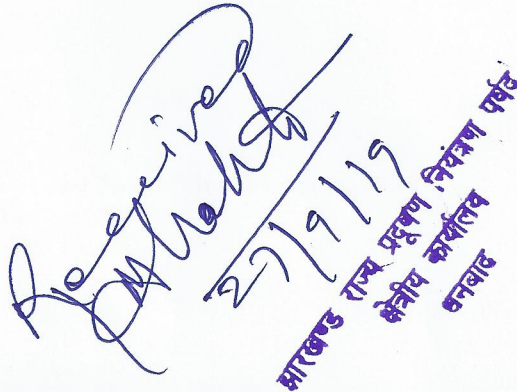 Received
27/9/19
झारखण्ड राज्य प्रदूषण नियंत्रण पर्षद
क्षेत्रीय कार्यालय
धनबाद